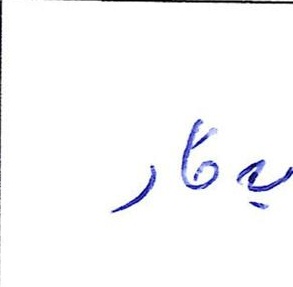 بہ کار